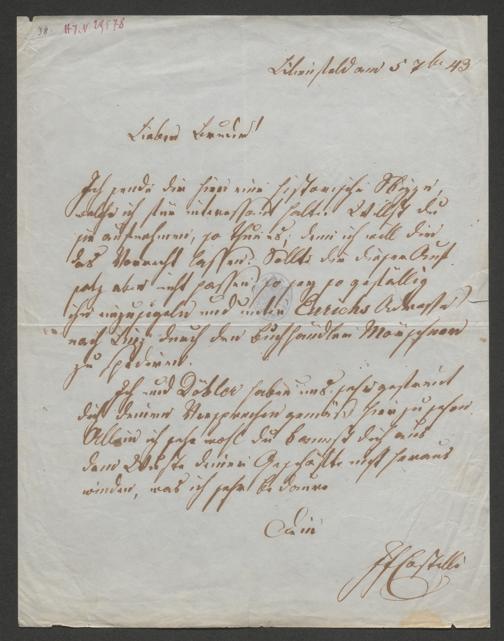 38 H.I.N. 29578
Lilienfeld am 5 7br 43
Lieber Freund!
Ich sende dir hier eine historische Skizze,
welche ich für interessant halte. Willst du
sie aufnehmen, so thue es, denn ich will dir
das Vorrecht lassen. Sollte dir dieser Auf-
satz aber nicht passen, so sey so gefällig
ihn einzusiegeln und unter Eurichs Adresse
nach Linz durch den Buchhändler
zu spediren.
Ich und Döbler haben uns sehr gefreut
dich deinem Versprechen gemäß hier zu sehen.
Allein ich sehe wohl du kannst dich aus
dem Wuste deiner Geschäfte nicht heraus
winden, was ich sehr bedaure
Dein
Castelli